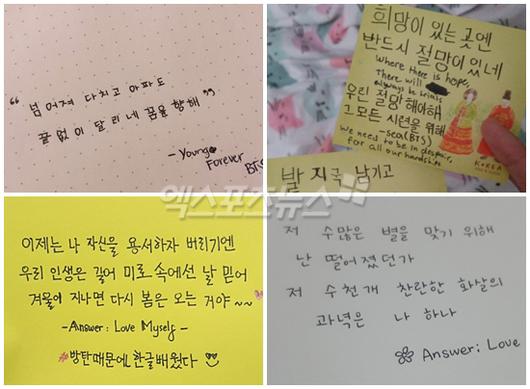 “ 넘어져 다치고 아파도
끝없이 달리네 꿈을 향해 ”
- Young
Forever
BTS
희망이 있는 곳엔
반드시 절망이 있네
where there is hope,
There will
always be trials
우린 절망해야해
그 모든 시련을 위해
-sea(BTS)
we need to be in despair,
for all our hardships
KOREA
발 자국 남기고
엑스포츠뉴스
이제는 나 자신을 용서하자 버리기엔
우리 인생은 길어 미로 속에선 날 믿어
겨울이 지나면 다시 봄은 오는 거야~~
- Answer: Love Myself -
#방탄때문에한글배웠다
저 수많은 별을 맞기 위해
난 떨어졌던가
저 수천개 찬란한 화살의
과녁은 나 하나
Answer: Love